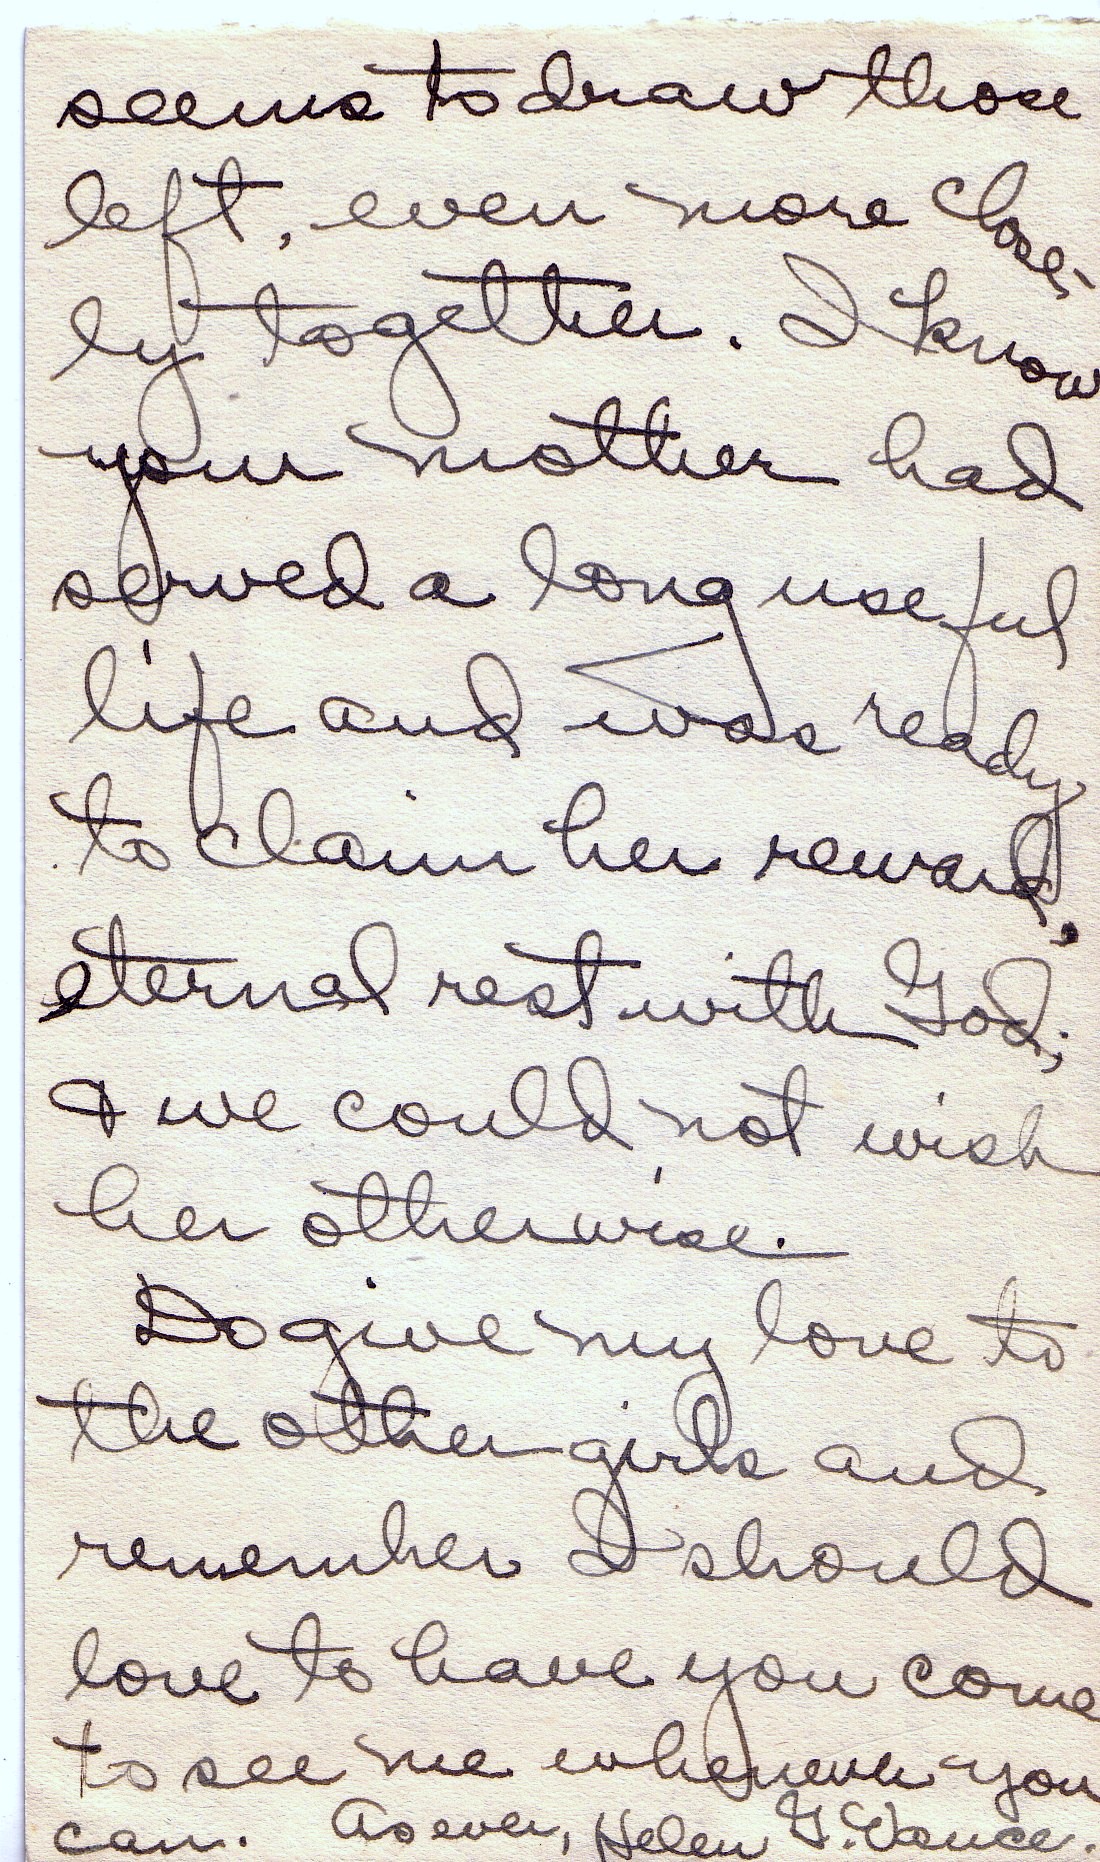 seems to draw those
left, even more close-
ly together. I know
your mother had
served a long useful
life and was ready
to claim her reward,
eternal rest with God;
& we could not wish
her otherwise.
Do give my love to
the other girls and
remember I should
love to have you come
to see me whenever you
can. As ever, Helen G. Vance.